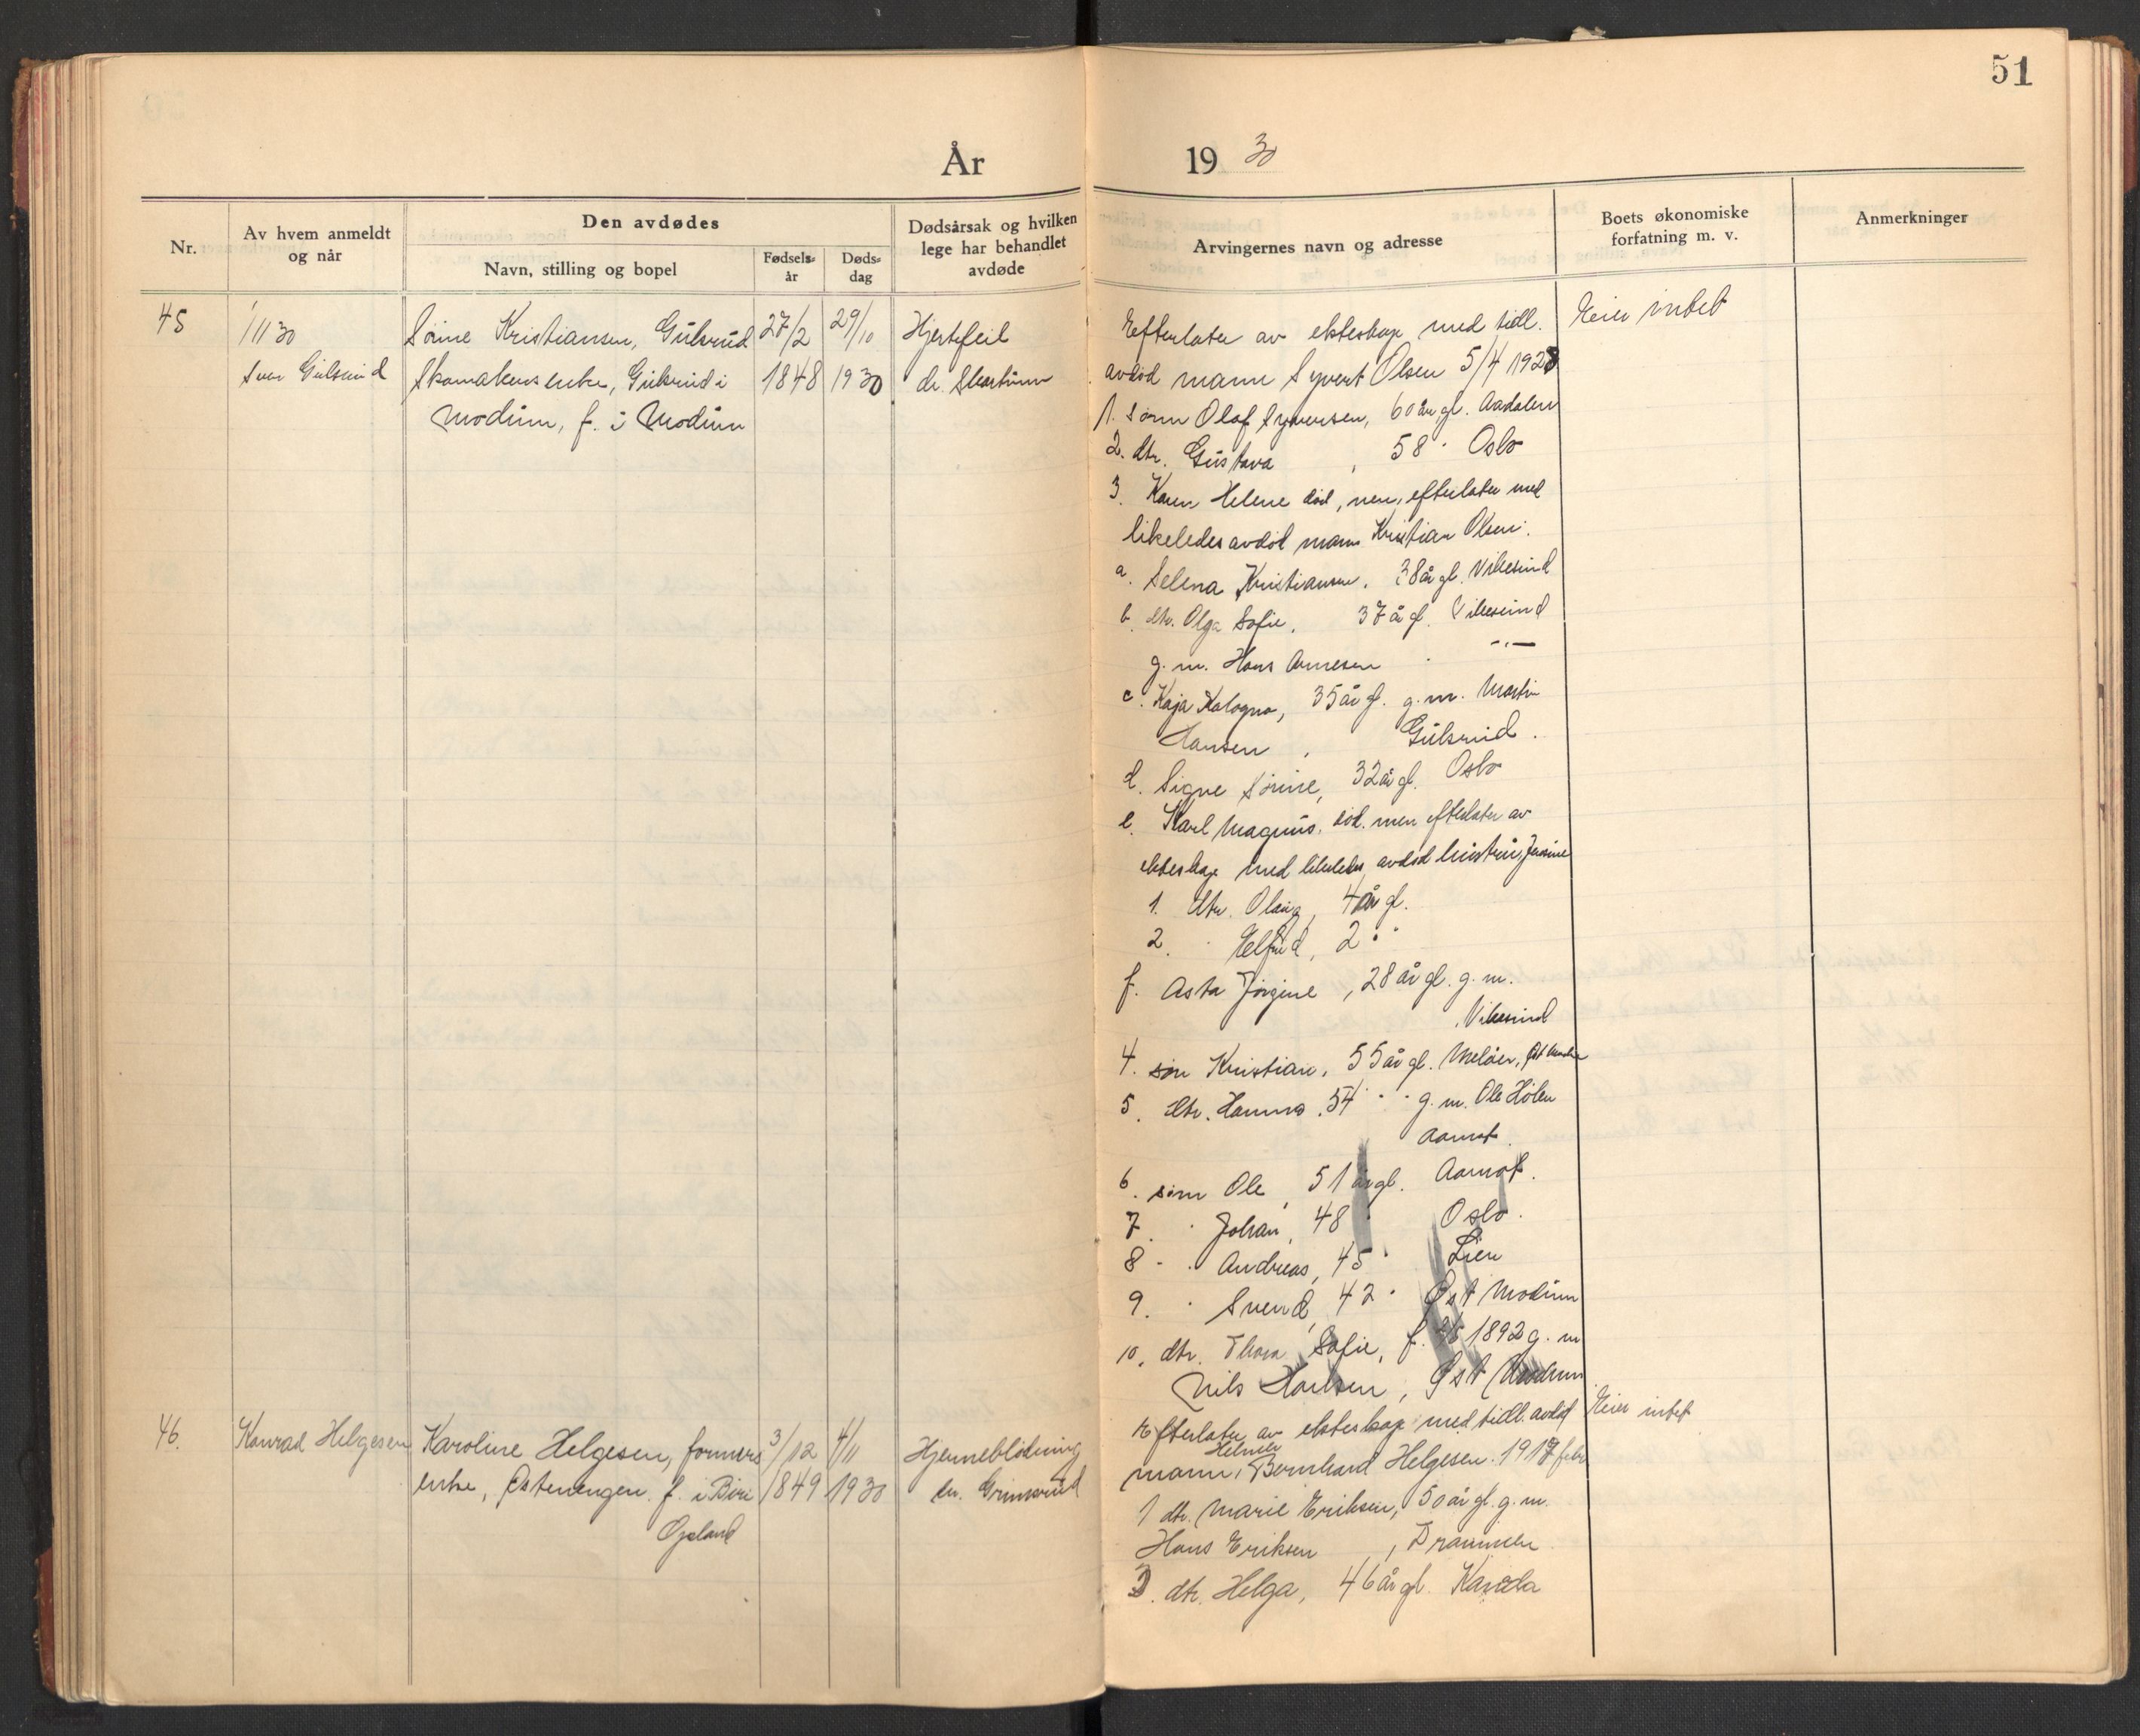 51
År 1930
Nr.
Av hvem anmeldt
og når
Den avdødes
Navn, stilling og bopel
Fødsels-
år
Døds-
dag
Dødsårsak og hvilken
lege har behandlet
avdøde
Arvingernes navn og adresse
Boets økonomiske
forfatning m. v.
Anmerkninger
45
1/11 30
Sven Gulsrud
Sørine Kristiansen, Gulsrud
Skomakerenke, Gulsrud i
Modum, f. i Modum
27/2
1848
29/10
1930
Hjertefeil
dr.
Efterlater av ekteskap med tidl.
avdød mann Syvert Olsen 5/4 1928
1. sønn Olaf Syversen, 60 år gl. Aadalen
2. dtr. Gustava, 58 " Oslo
3. Karen Helene død, men efterlater med
likeledes avdød mann Kristian Olsen:
a. Selena Kristiansen, 38 år gl. Vikesund
b. dtr. Olga Sofie, 37 år gl. Vikesund
g. m. Hans Arnesen -"-
c. Kaja Kalogna, 35 år gl. g. m. Martin
Hansen, Gulsrud.
d. Signe Sørine, 32 år gl. Oslo
e. Karl Magnus, død, men efterlater av
ekteskap med likeledes avdød hustru Jensine
1. dtr. Olaug, 4 år gl.
2. " Elfrid, 2 " "
f. Asta Jørgine, 28 år gl. g. m.
, Vikesund
4. søn Kristian, 55 år gl. Meløen, Øst Modum
5. dtr. Hanna, 54 " " g. m. Ole Hølen
Aamot.
6. sønn Ole, 51 år gl. Aamot.
7. " Johan, 48 " Oslo.
8 " " Andreas, 45 " Lien
9. " Svend, 42 " Øst Modum
10. dtr. Thora Sofie, f. 1892 g. m
Nils Hansen, Øst Modum
Eier intet
46.
Konrad Helgesen
Karoline Helgesen, formers
enke, Østenengen. f. i Biri
Opland
3/12
1849
4/11
1930
Hjerneblødning
dr. Grimsrud
Efterlater av ekteskap med tidl. avdød
Helmer
mann, Bernhard Helgesen. 1917 febr
1 dtr. Marie Eriksen, 50 år gl. g. m.
Hans Eriksen, Drammen
2. dtr. Helga, 46 år gl. Kanada
Eier intet